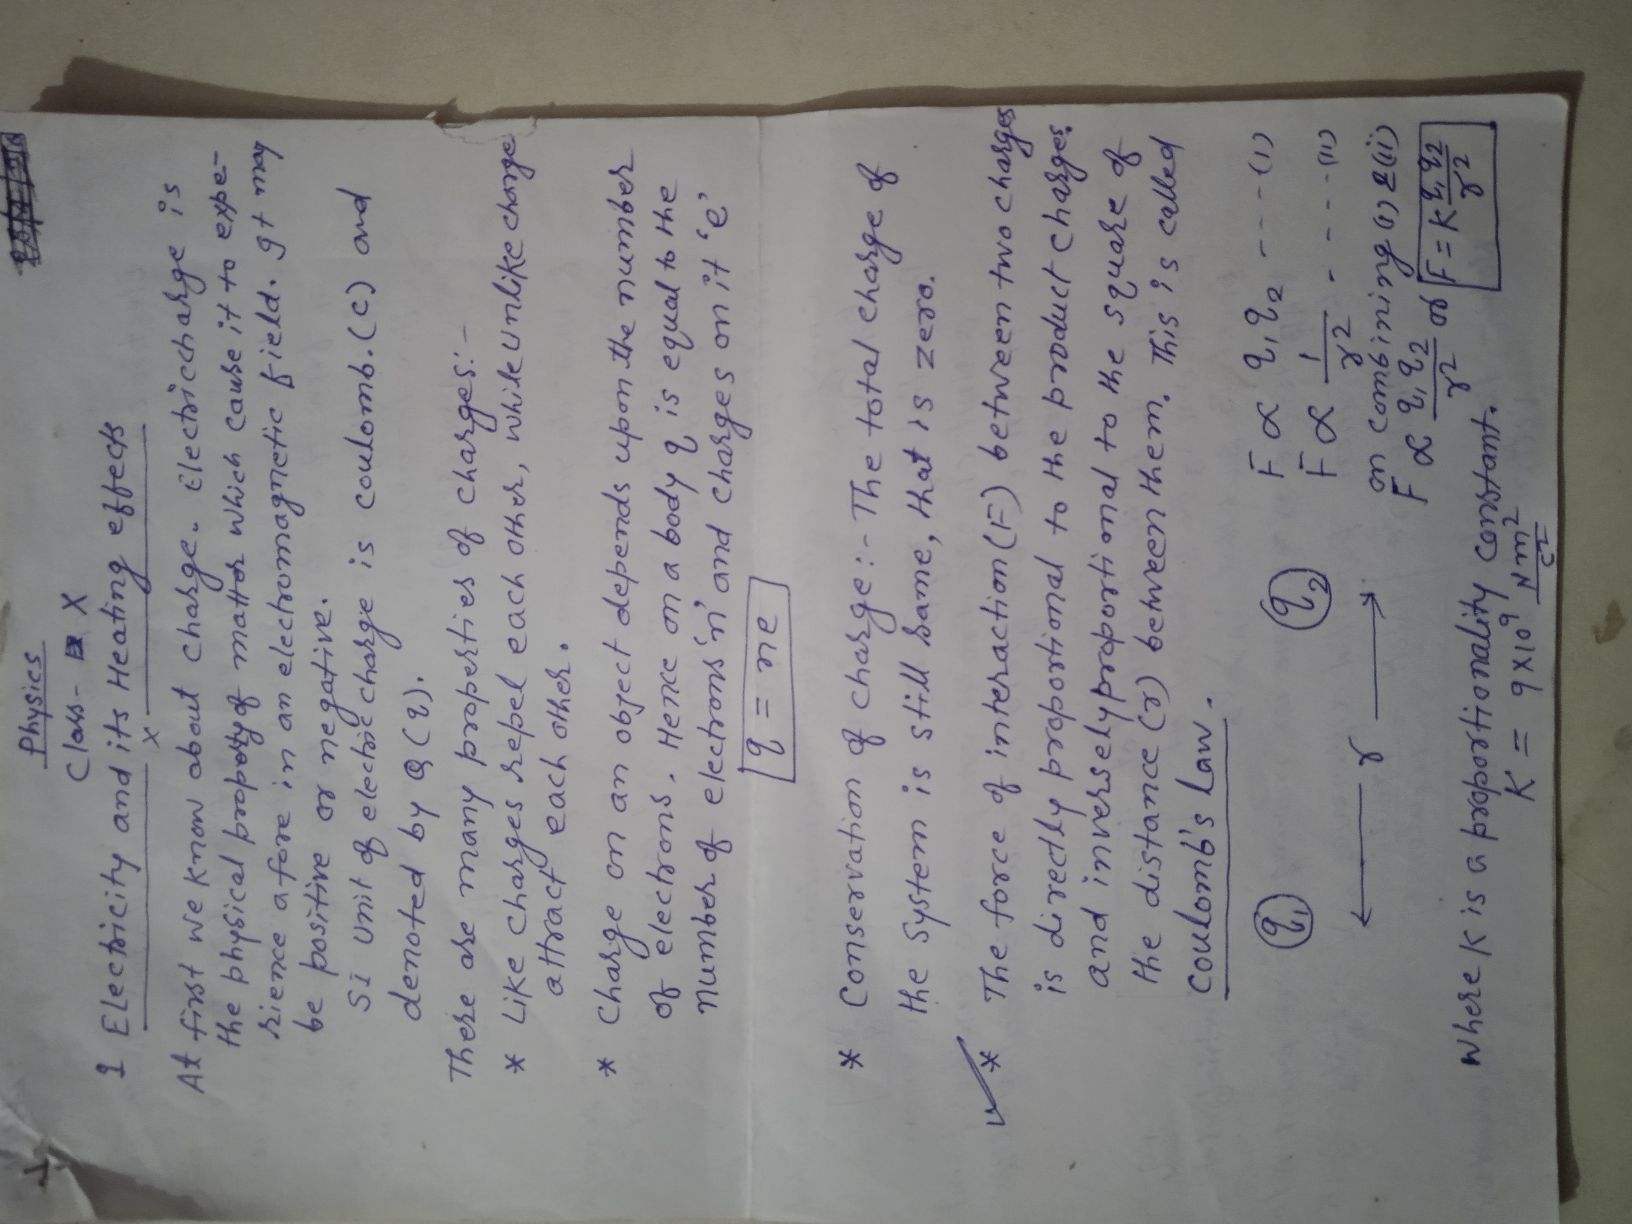 Physics
Class- X
1 Electricity and its Heating effects
x
At first we know about charge. Electric charge is
the physical property of matter which cause it to expe-
rience a force in an electromagnetic field. It may
be positive or negative.
SI unit of electric charge is coulomb.(C) and
denoted by Q (q).
There are many properties of charges:-
* Like charges repel each other, while unlike charge
attract each other.
* Charge on an object depends upon the number
of electrons. Hence on a body q is equal to the
number of electrons 'n' and charges on it 'e'
q = ne
* Conservation of charge:- The total charge of
the system is still same, that is zero.
* The force of interaction (F) between two charges
is directly proportional to the product charges
and inversely proportional to the square of
the distance (r) between them. This is called
Coulomb's Law.
q₁ q₂ F ∝ q₁ q₂ ----(i)
r F ∝ 1/r² - - - - -(ii)
on combining (i) & (ii)
F ∝ q₁ q₂/r² or F = K q₁ q₂/r²
where K is a proportionality constant.
K = 9 x 10⁹ Nm²/C²